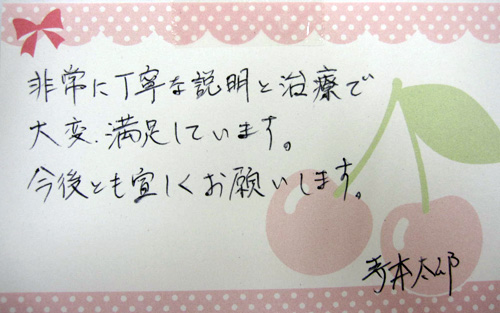 非常に丁寧な説明と治療で
大変、満足しています。
今後とも宜しくお願いします。
寺本太郎